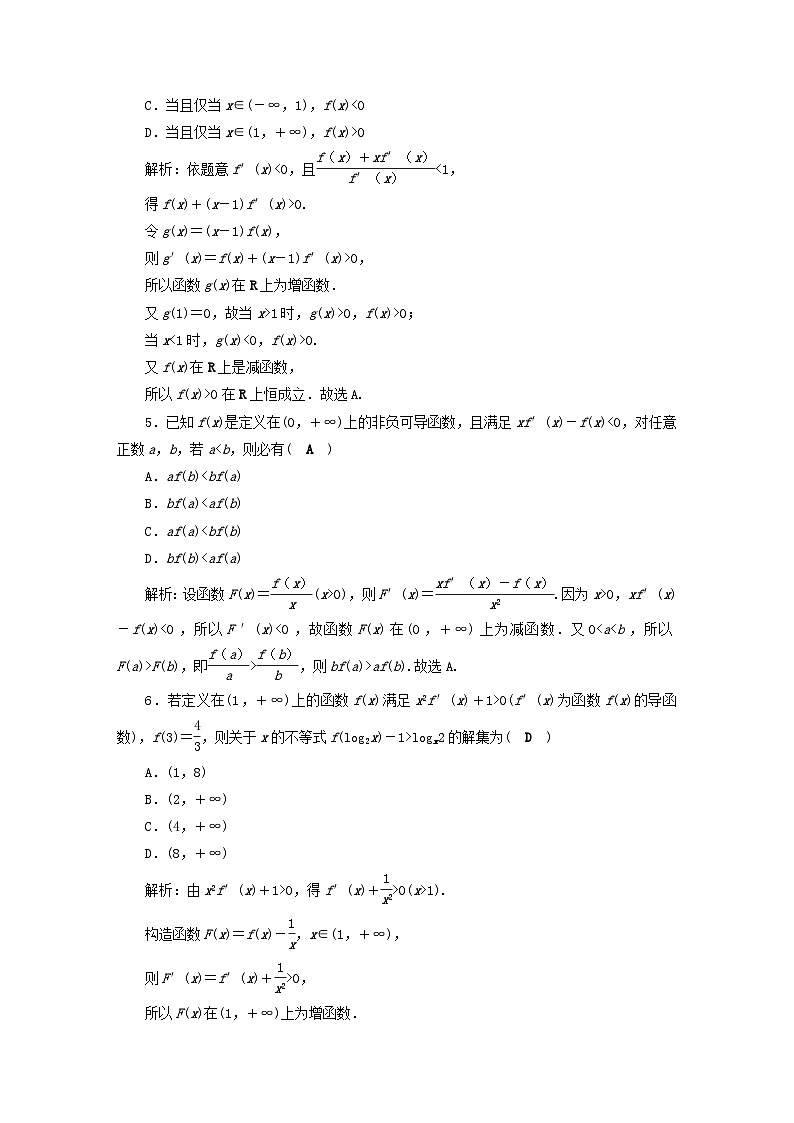 C.当且仅当x∈(-∞,1),f(x)<0
D.当且仅当x∈(1,+∞),f(x)>0
解析:依题意f′(x)<0,且\frac{f(x)+xf′(x)}{f′(x)}<1,
得f(x)+(x-1)f′(x)>0.
令g(x)=(x-1)f(x),
则g′(x)=f(x)+(x-1)f′(x)>0,
所以函数g(x)在R上为增函数.
又g(1)=0,故当x>1时,g(x)>0,f(x)>0;
当x<1时,g(x)<0,f(x)>0.
又f(x)在R上是减函数,
所以f(x)>0在R上恒成立.故选A.
5.已知f(x)是定义在(0,+∞)上的非负可导函数,且满足xf′(x)-f(x)<0,对任意
正数a,b,若a<b,则必有( A )
A.af(b)<bf(a)
B.bf(a)<af(b)
C.af(a)<bf(b)
D.bf(b)<af(a)
解析:设函数F(x)=\frac{f(x)}{x}(x>0),则F′(x)=\frac{xf′(x)-f(x)}{x²}.因为x>0,xf′(x)
-f(x)<0,所以F′(x)<0,故函数F(x)在(0,+∞)上为减函数.又0<a<b,所以
F(a)>F(b),即\frac{f(a)}{a}>\frac{f(b)}{b},则bf(a)>af(b).故选A.
6.若定义在(1,+∞)上的函数f(x)满足x²f′(x)+1>0(f′(x)为函数f(x)的导函
数),f(3)=\frac{4}{3},则关于x的不等式f(log₂x)-1>logₓ2的解集为( D )
A.(1,8)
B.(2,+∞)
C.(4,+∞)
D.(8,+∞)
解析:由x²f′(x)+1>0,得f′(x)+\frac{1}{x²}>0(x>1).
构造函数F(x)=f(x)-\frac{1}{x},x∈(1,+∞),
则F′(x)=f′(x)+\frac{1}{x²}>0,
所以F(x)在(1,+∞)上为增函数.